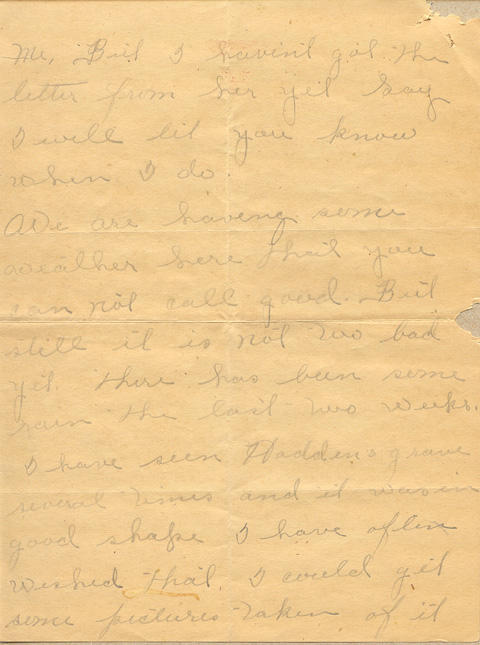 Me, But I havin't got the
letter from her yet Say
I will let you know
when I do.
We are having some
weather here that you
can not call good. But
still it is not two bad
yet. there has been some
rain the last two weeks.
I have seen Hadden's grave
several times and it was in
good shape I have often
wished that I could get
some pictures taken of it